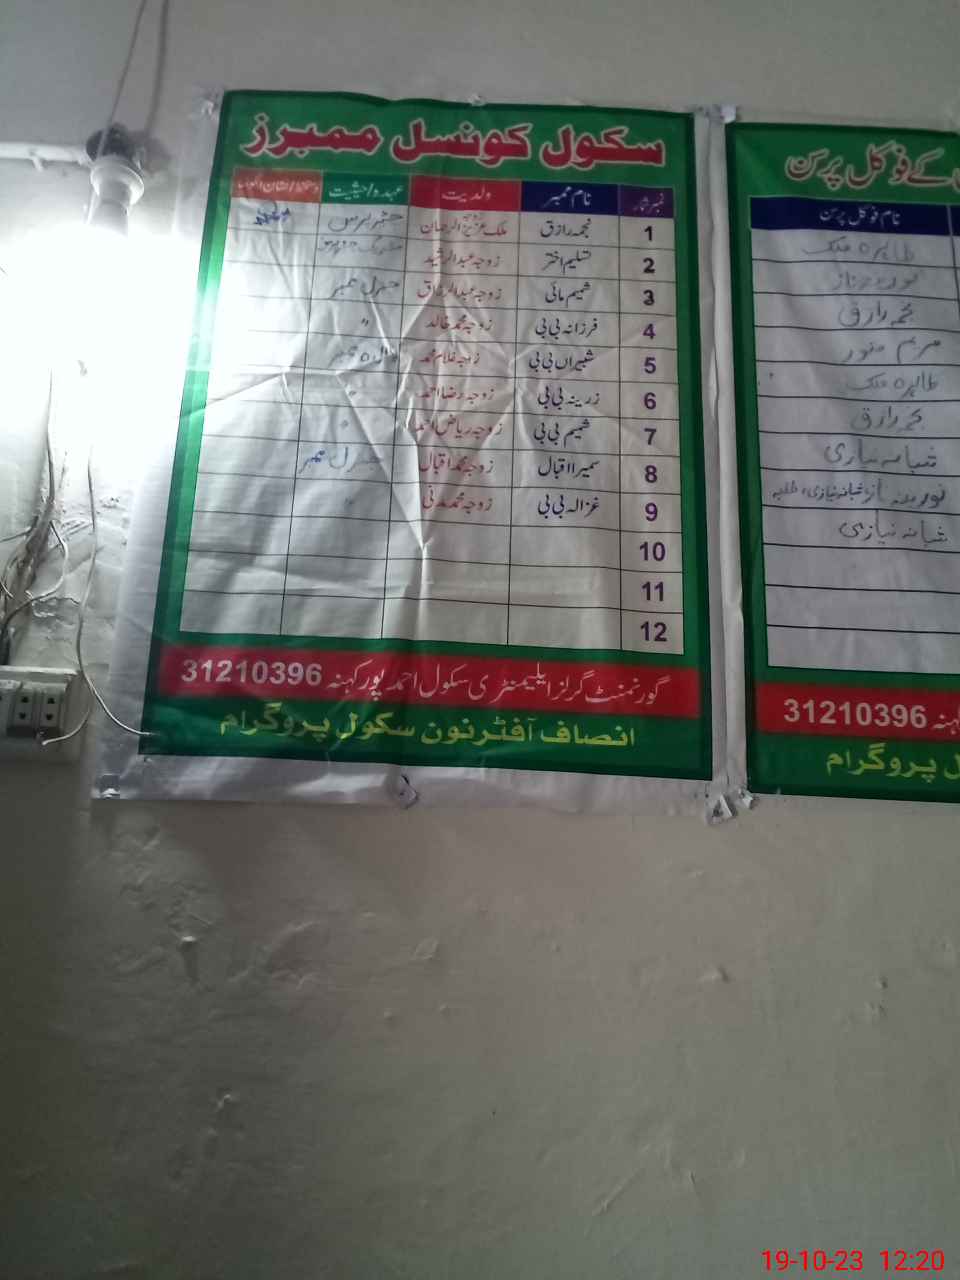 سکول کونسل ممبرز
نمبر شمار نام ممبر ولدیت عہدہ/حیثیت دستخط/نشان انگوٹھا
1 نجمہ رازق زوجہ ملک عزیز الرحمان
2 تسلیم اختر زوجہ عبدالرشید
3 شمیم مائی زوجہ عبدالرزاق جنرل ممبر
4 فرزانہ بی بی زوجہ محمد خالد "
5 شبیراں بی بی زوجہ غلام محمد والدہ ممبر
6 زرینہ بی بی زوجہ رضا احمد "
7 شمیم بی بی زوجہ ریاض احمد "
8 سمیرا اقبال زوجہ محمد اقبال جنرل ممبر
9 غزالہ بی بی زوجہ محمد مدنی "
10
11
12
گورنمنٹ گرلز ایلیمنٹری سکول احمد پور کہنہ 31210396
انصاف آفٹرنون سکول پروگرام
کے فوکل پرسن
نام فوکل پرسن
طاہرہ ملک
نجمہ رازق
مریم منور
طاہرہ ملک
نجمہ رازق
شبانہ نیازی
شبانہ نیازی، طلبہ
شبانہ نیازی
کہنہ 31210396
پروگرام
19-10-23 12:20